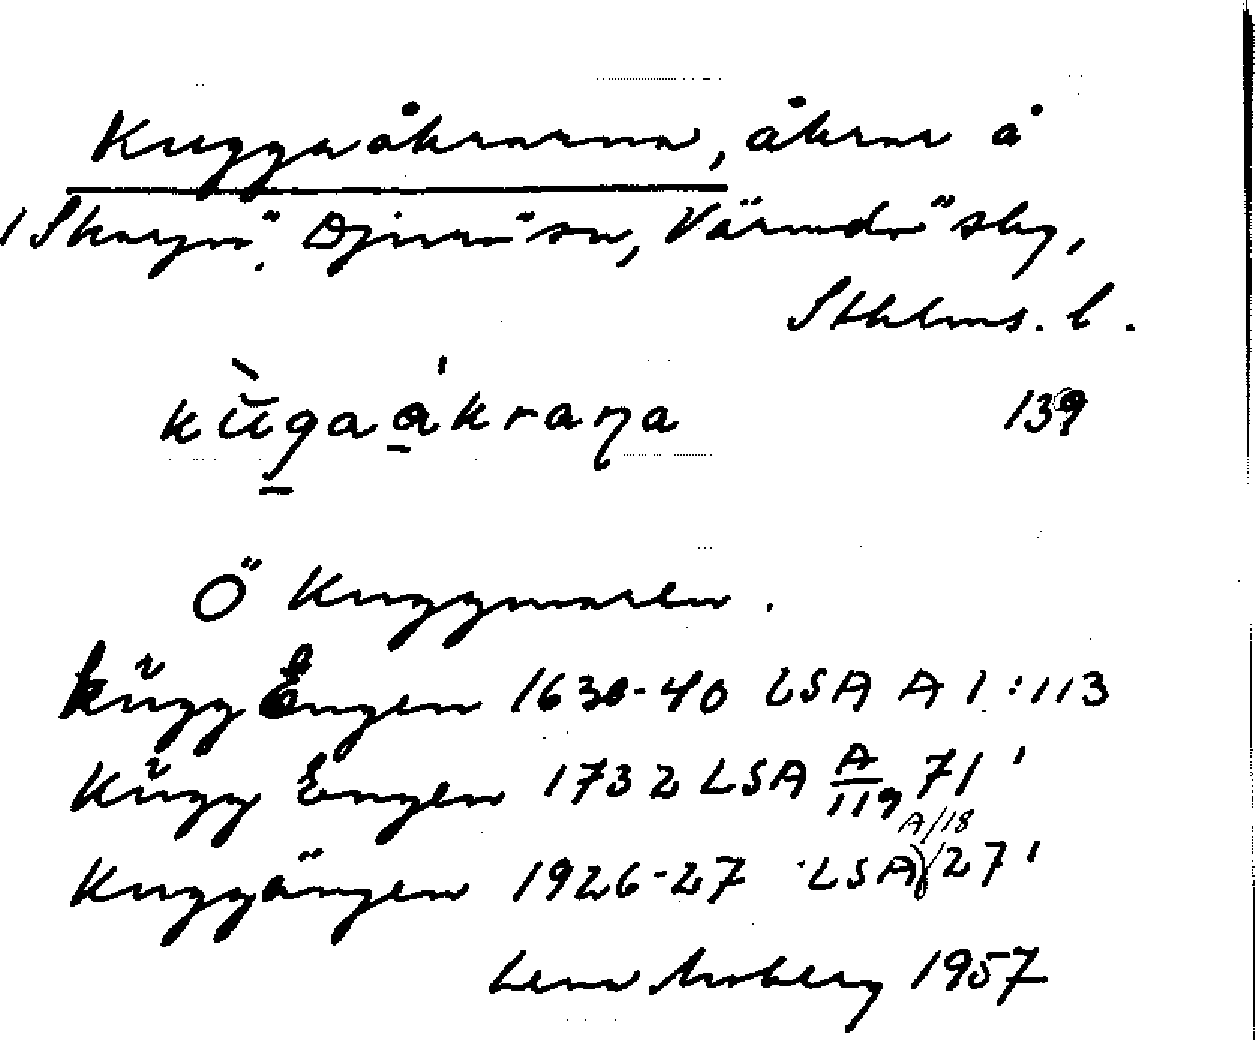 Kuggaåkrarna, åkrar å
Skarpö, Djurö sn, Värmdö slg,
Sthlms. l.
kùgaákraṇa 139
Ö Kuggmaren.
Kŭgg Engen 1630-40 LSA A 1:113
Kŭgg Engen 1732 LSA A/119 71'
A/18
Kuggängen 1926-27 LSA 27'
Lena Moberg 1957